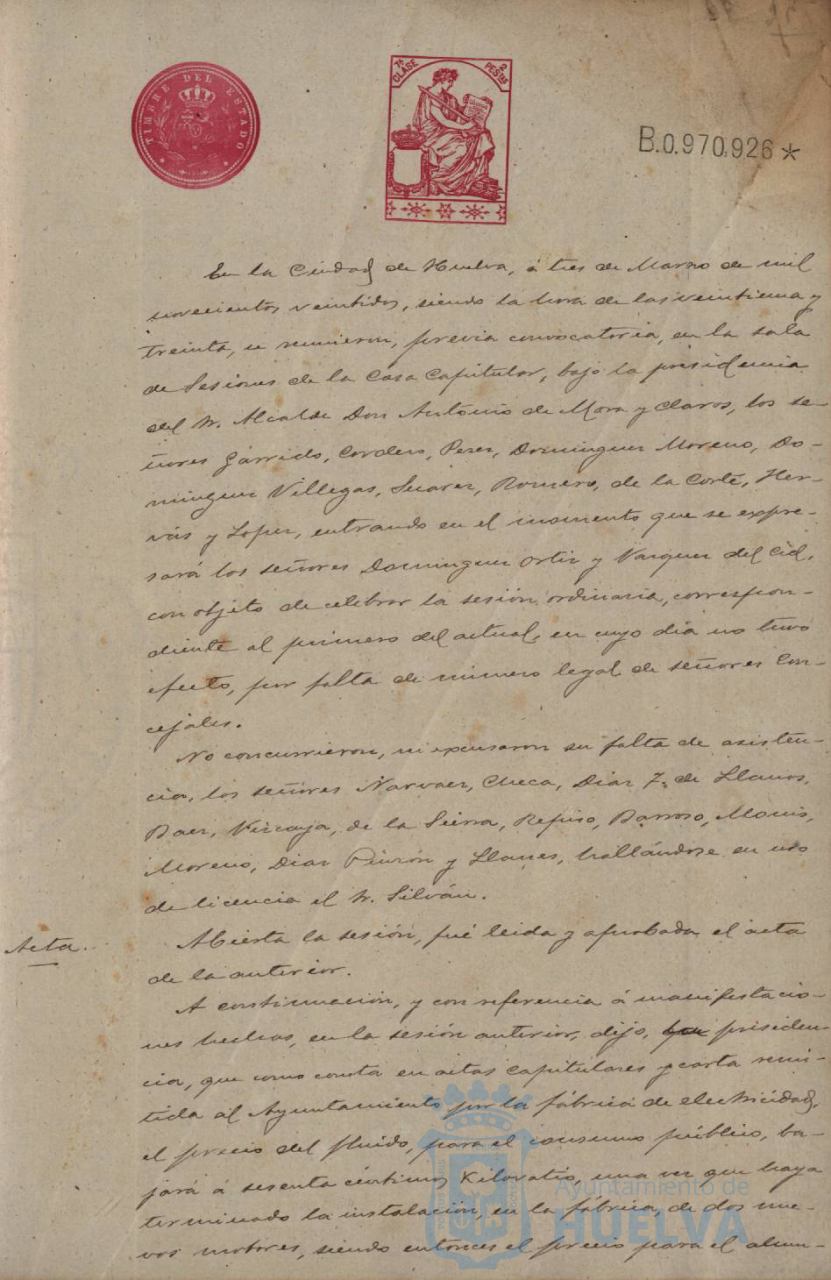 TIMBRE DEL ESTADO
7ª CLASE
2 PESTAS
B.0.970.926*
En la Ciudad de Huelva, á tres de Marzo de mil
novecientos veintidos, siendo la hora de las veintiuna y
treinta, se reunieron, previa convocatoria, en la sala
de Sesiones de la Casa Capitular, bajo la presidencia
del Sr. Alcalde Don Antonio de Mora y Claros, los se-
ñores Garrido, Cordero, Perez, Dominguez Moreno, Do-
minguez Villegas, Suarez, Romero, de la Corte, Her-
vás y Lopez, entrando en el momento que se expre-
sará los señores Dominguez Ortiz y Vazquez del Cid,
con objeto de celebrar la sesión ordinaria, correspon-
diente al primero del actual, en cuyo dia no tuvo
efecto, por falta de número legal de señores Con-
cejales.
No concurrieron, ni excusaron su falta de asisten-
cia, los señores Narvaez, Checa, Diaz F. de Llanos,
Baez, Vizcaya, de la Sierra, Repiso, Barroso, Monis,
Moreno, Diaz Pinzón y Llanes, hallándose en uso
de licencia el Sr. Silván.
Acta.
Abierta la sesión, fué leida y aprobada el acta
de la anterior.
A continuación, y con referencia á manifestacio-
nes hechas, en la sesión anterior, dijo, presiden-
cia, que como consta en actas capitulares y carta remi-
tida al Ayuntamiento por la fábrica de electricidad,
el precio del fluido, para el consumo público, ba-
jará á sesenta céntimos Kilovatio, una vez que haya
terminado la instalación, en la fábrica, de dos nue-
vos motores, siendo entonces el precio para el alum-
Ayuntamiento de
HUELVA